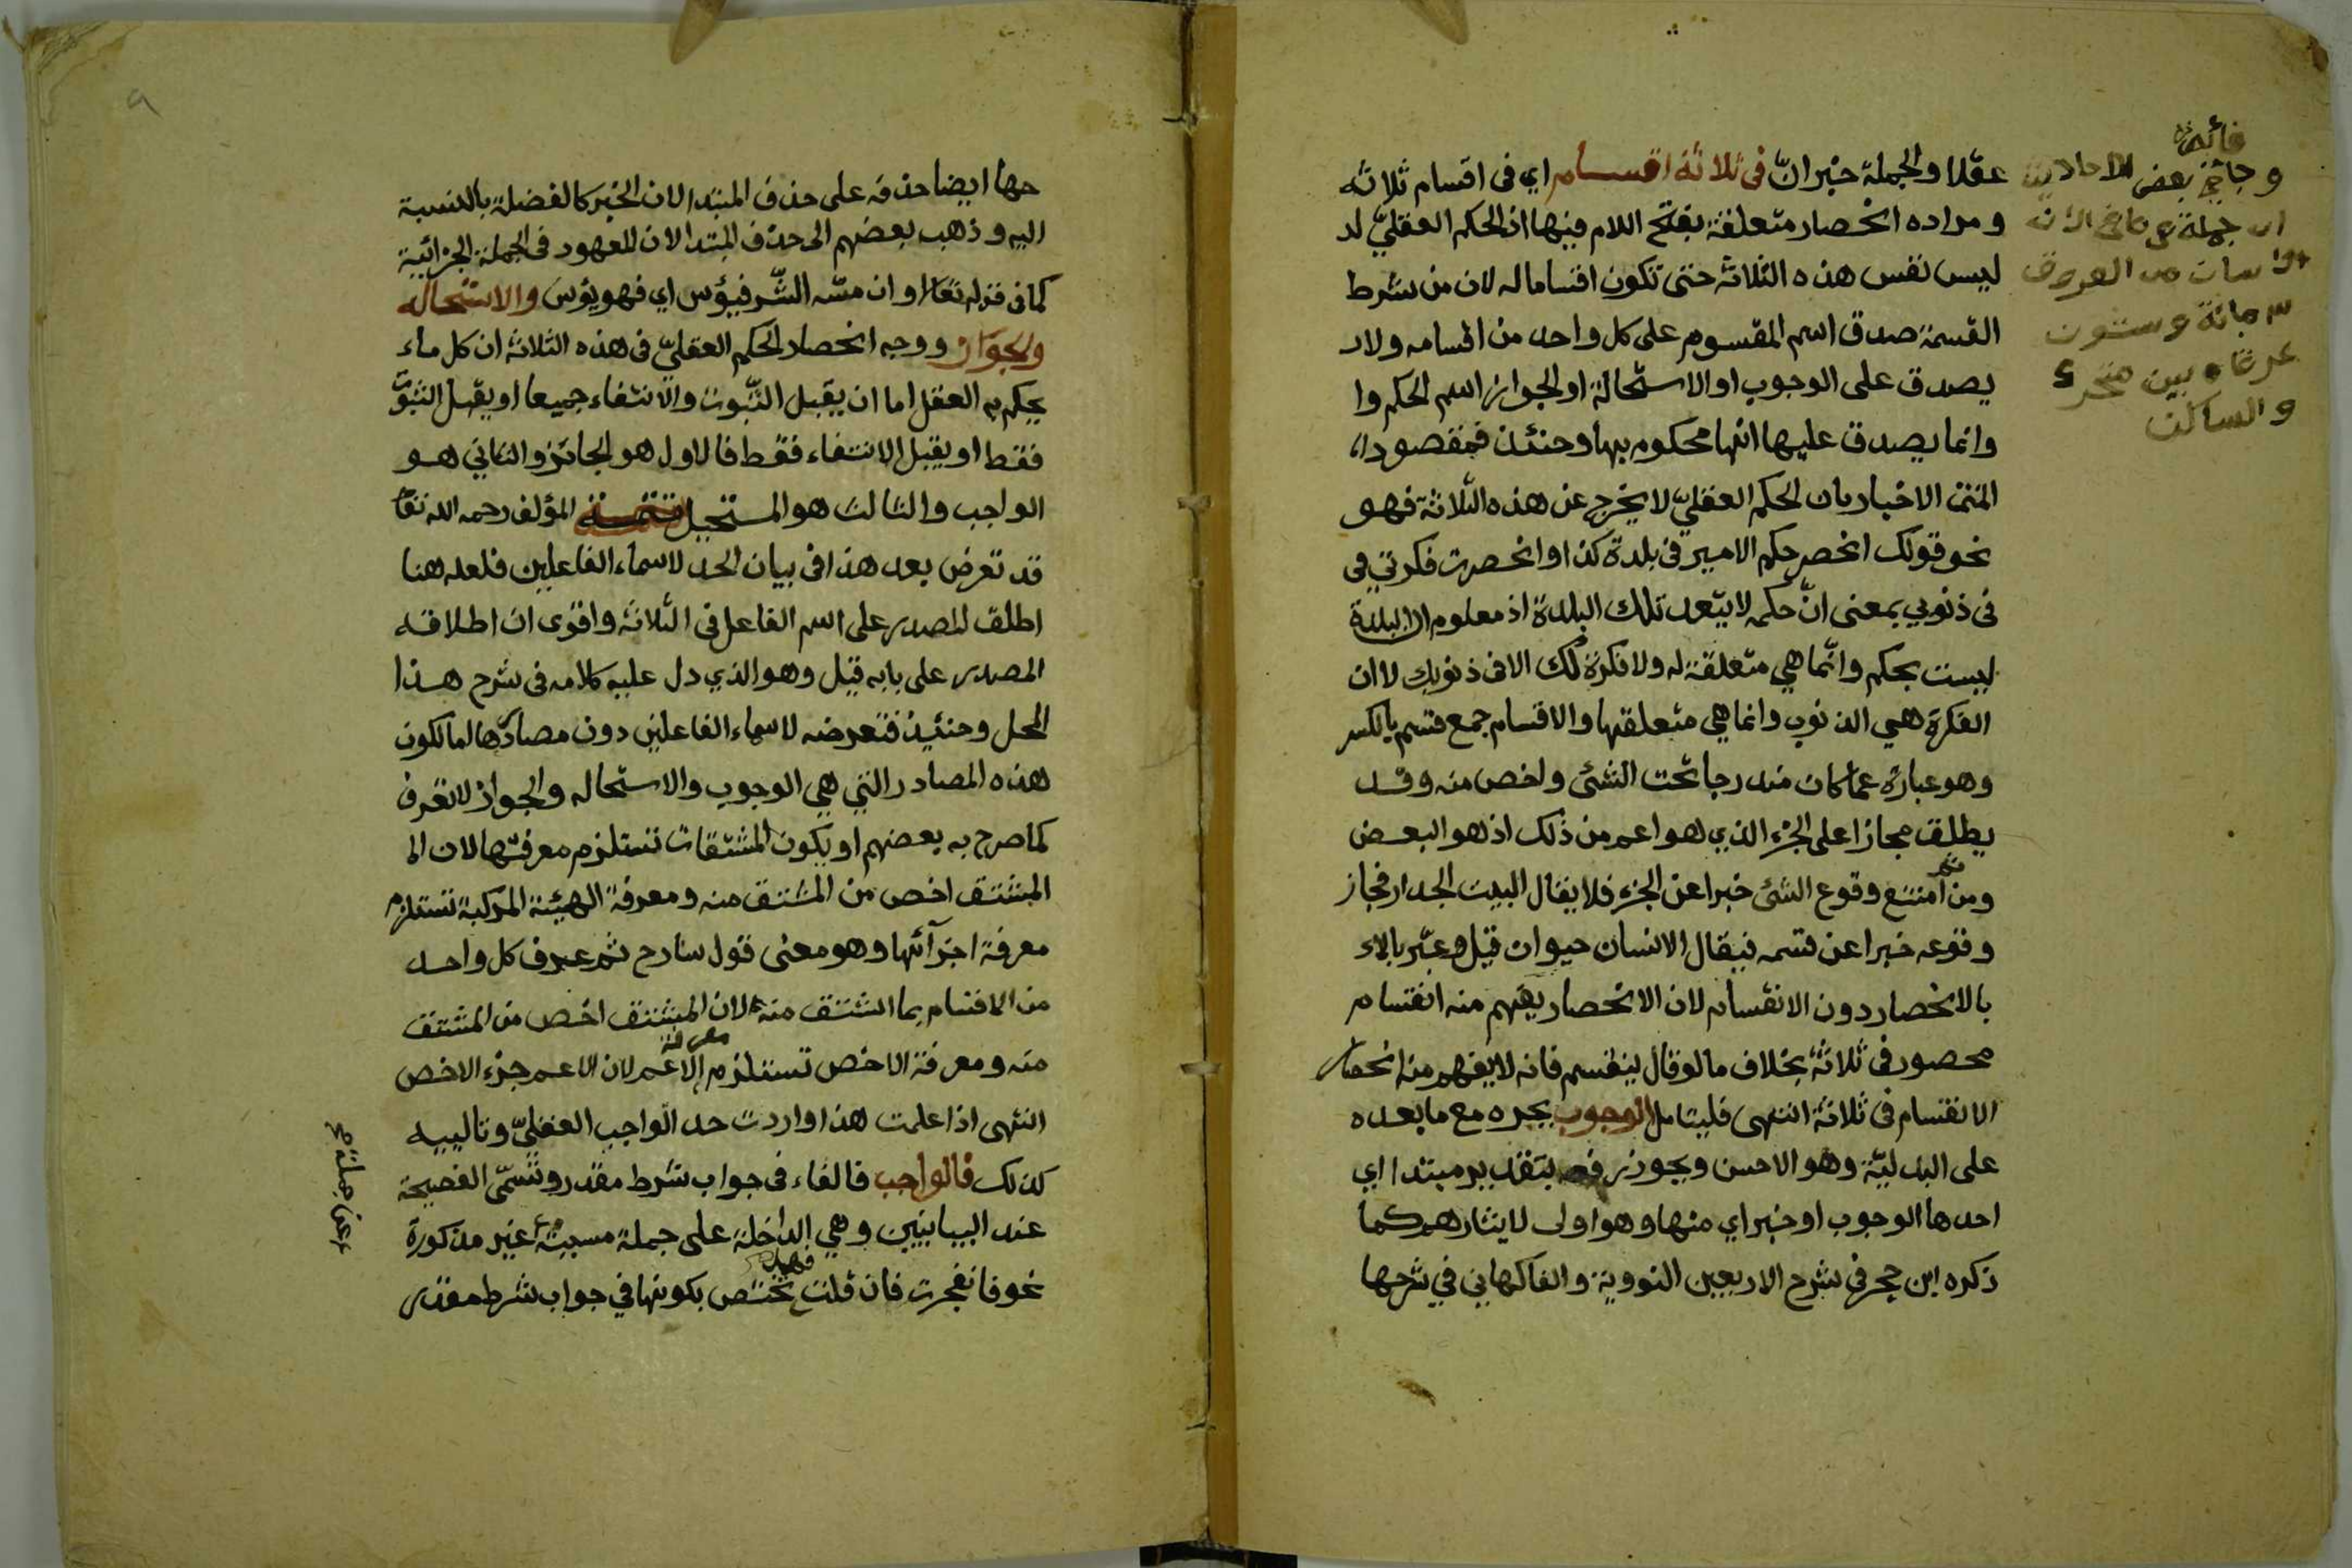 عقلا والجملة خبران في ثلاثة اقسام اي في اقسام ثلاثه
ومراده انحصار متعلقة بفتح اللام فيها اذ الحكم العقلي لد
ليس نفس هذه الثلاثة حتى تكون اقساما له لان من شرط
القسمة صدق اسم المقسوم على كل واحد من اقسامه ولا
يصدق على الوجوب او الاستحالة او الجواز اسم الحكم وا
وانما يصدق عليها انها محكوم بها وحنئذ فمقصود
المتن الاخبار بان الحكم العقلي لا يخرج عن هذه الثلاثة فهو
نحو قولك انحصر حكم الامير في بلدة كذا وانحصرت فكرتي في
في ذنوبي بمعنى ان حكمه لا يتعد تلك البلدة اذ معلوم ان البلدة
ليست بحكم وانما هي متعلقة له ولا فكرة لك الا في ذنوبك لا ان
الفكرة هي الذنوب وانما هي متعلقتها والاقسام جمع قسم بالكسر
وهو عبارة عما كان مندرجا تحت الشئ واخص منه وقد
يطلق مجازا على الجزء الذي هو اعم من ذلك اذ هو البعض
ومن ثم امتنع وقوع الشئ خبرا عن الجزء فلا يقال البيت الجدار فجاز
وقوعه خبرا عن قسمه فيقال الانسان حيوان قيل وعبر بالاء
بالانحصار دون الانقسام لان الانحصار يفهم منه انقسام
محصور في ثلاثة بخلاف ما لو قال ينقسم فانه لا يفهم منه انحصار
الانقسام في ثلاثة انتهى فليتامل الوجوب بجره مع ما بعده
على البدلية وهو الاحسن ويجوز رفعه بتقدير مبتدا اي
احدها الوجوب او خبر اي منها وهو اولى لايثارهم كما
ذكره ابن حجر في شرح الاربعين النووية والفاكهاني في شرحها
فائدة
وجا في بعض الاحاديث
ان جملة
من العروق
وستون
عرقا بين متحرك
والساكن
حها ايضا حذفه على حذف المبتدا لان الخبر كالفضلة بالنسبة
اليه وذهب بعضهم الى حذف المبتدا لان المعهود في الجملة الجزائية
كما في قوله تعا وان مسه الشر فيؤس اي فهو يؤس والاستحاله
والجواز ووجه انحصار الحكم العقلي في هذه الثلاثة ان كل ماء
يحكم به العقل اما ان يقبل الثبوت والانتفاء جميعا او يقبل الثبوت
فقط او يقبل الانتفاء فقط فالاول هو الجائز والثاني هو
الواجب والثالث هو المستحيل المؤلف رحمه الله تعا
قد تعرض بعد هذا في بيان الحد لاسماء الفاعلين فلعله هنا
اطلق المصدر على اسم الفاعل في الثلاثة واقوى ان اطلاقه
المصدر على بابه قيل وهو الذي دل عليه كلامه في شرح هذا
المحل وحنئيذ فتعرضه لاسماء الفاعلين دون مصادرها اما لكون
هذه المصادر التي هي الوجوب والاستحاله والجواز لا تعرف
كما صرح به بعضهم او يكون المشتقات تستلزم معرفتها لان الم
المشتق اخص من المشتق منه ومعرفة الهيئة المركبة تستلزم
معرفة اجزآئها وهو معنى قول شارح ثم عرف كل واحد
من الاقسام بما اشتق منه لان المشتق اخص من المشتق
منه ومعرفة الاخص تستلزم معرفة الاعم لان الاعم جزء الاخص
انتهى اذا علمت هذا واردت حد الواجب العقلي وتالييه
كذلك فالواجب فالفاء في جواب شرط مقدر وتسمى الفصيحة
عند البيانيين وهي الداخلة على جملة مسببة غير مذكورة
نحو فانفجرت فان قلت فهل تختص بكونها في جواب شرط مقدر
عن جملة